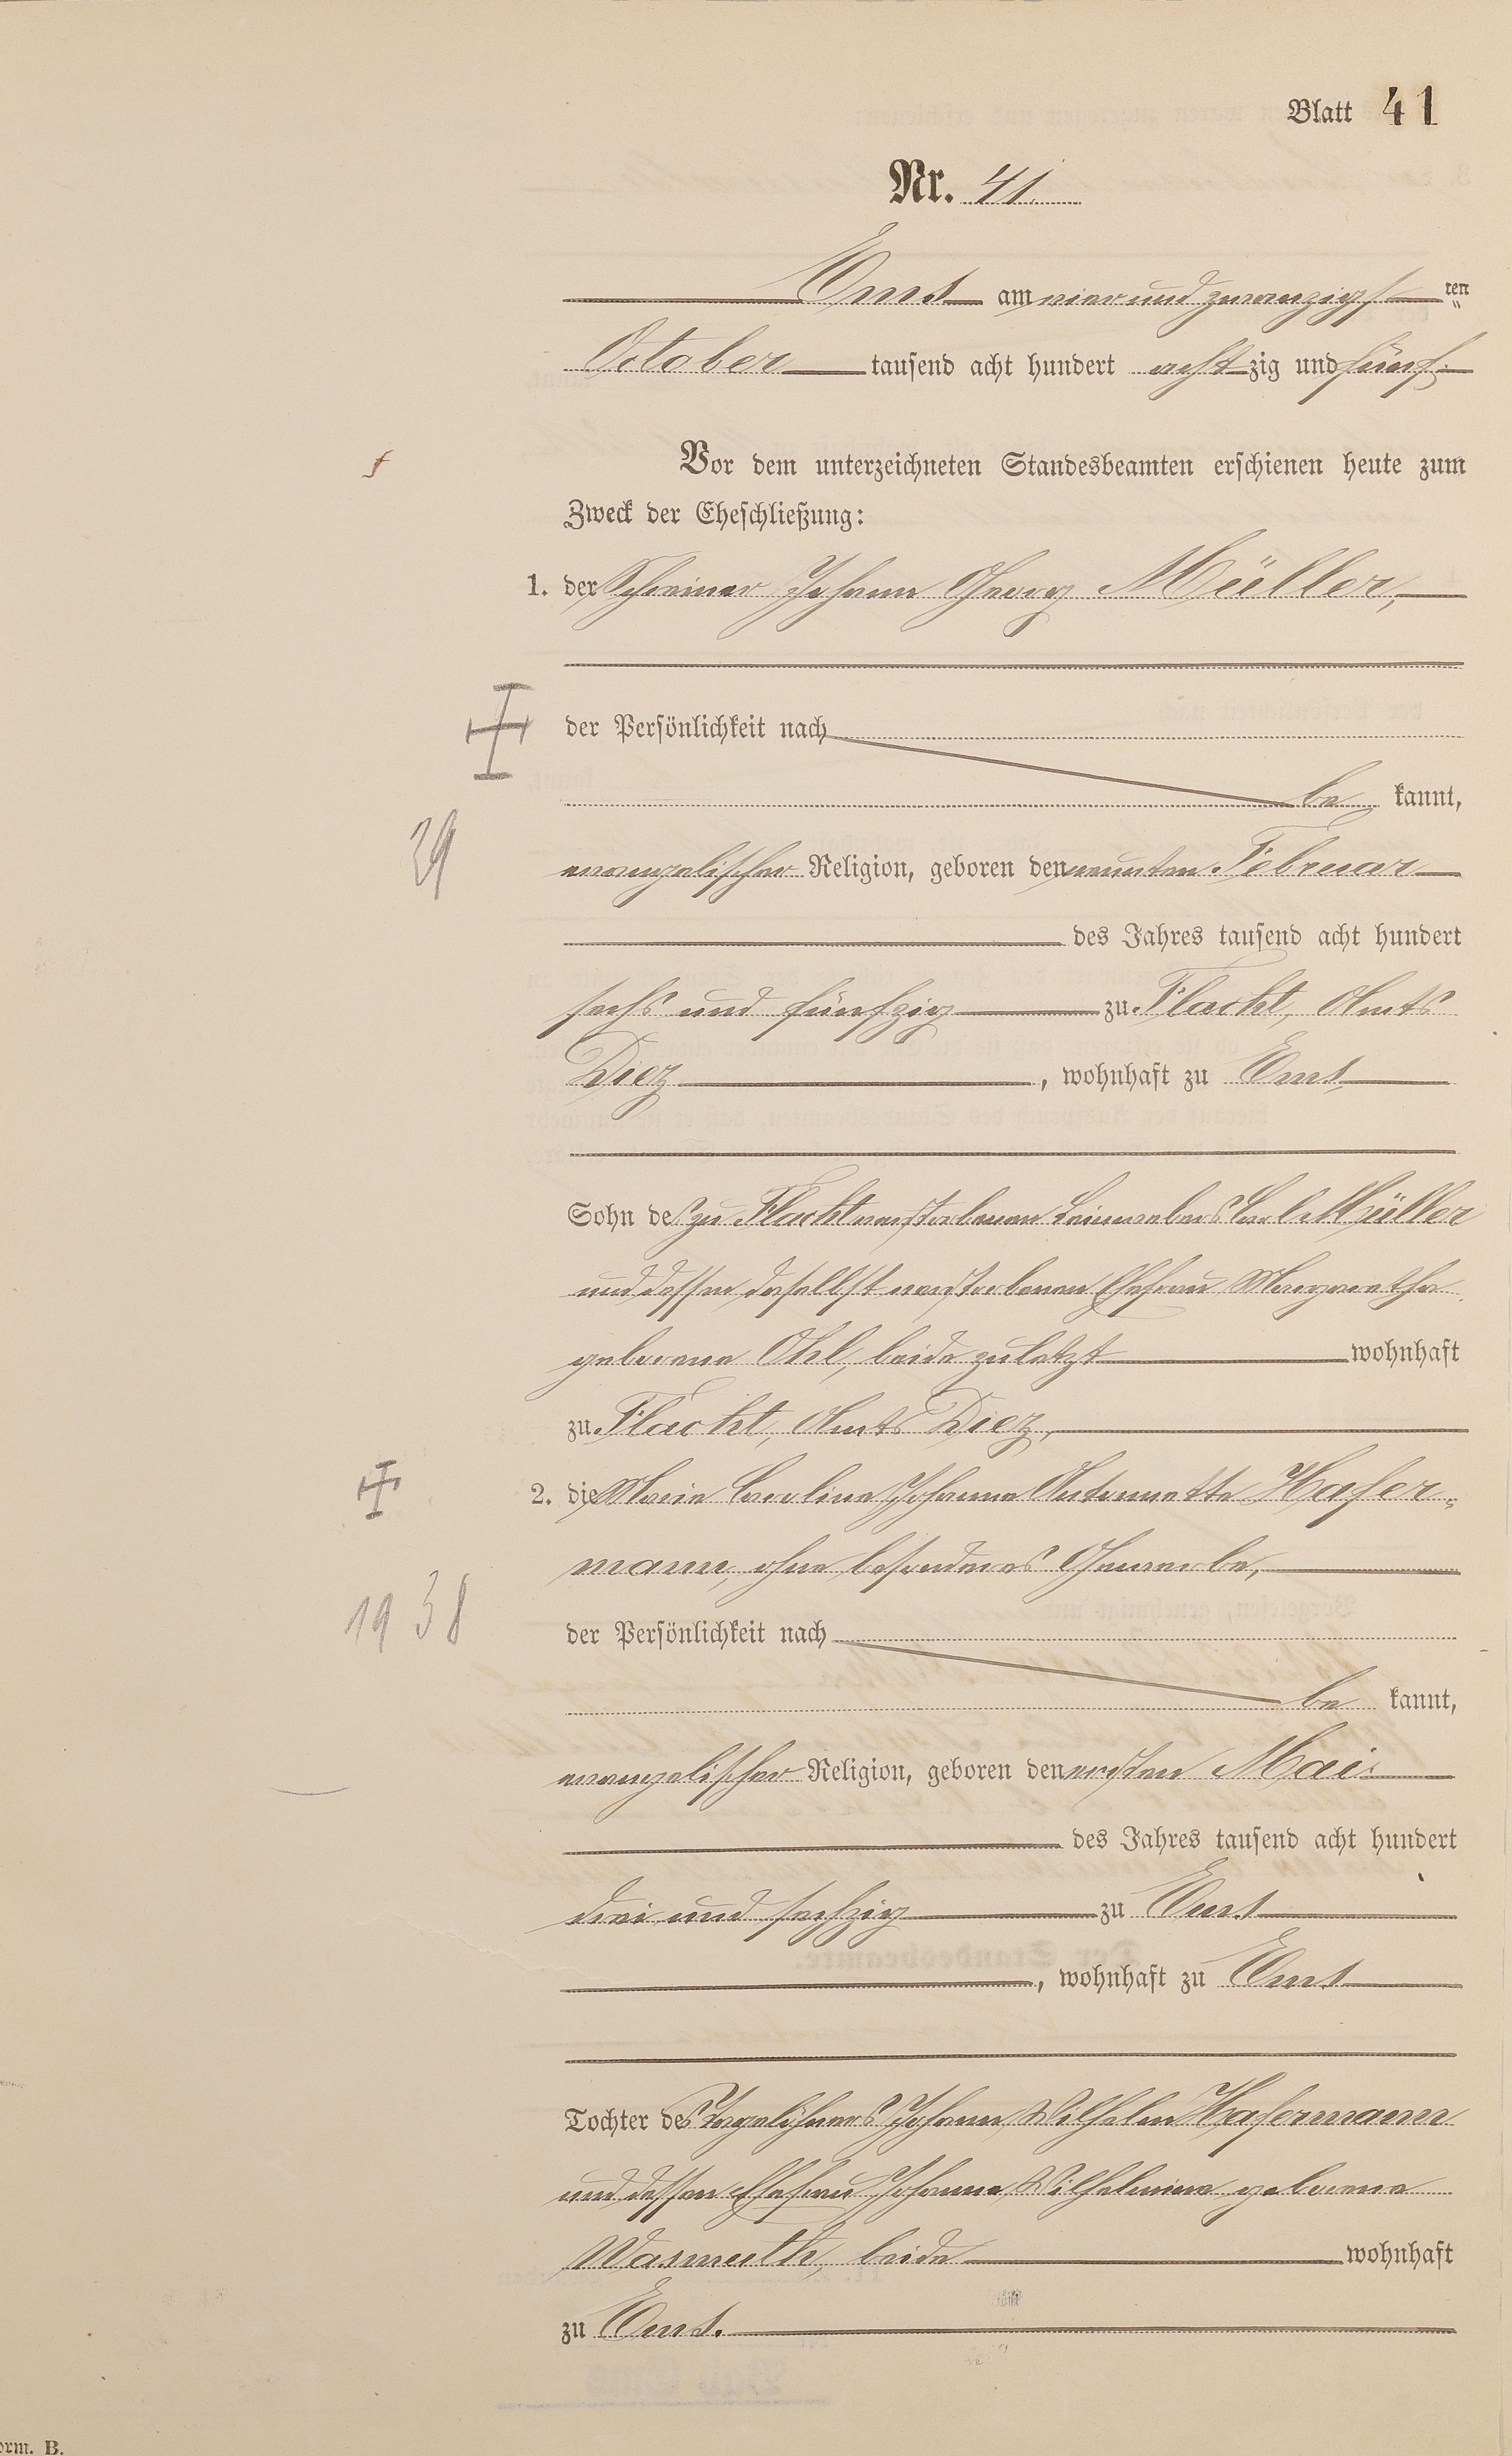 Blatt 41
Nr. 41.
Ems am vier und zwanzigsten
October tausend acht hundert achtzig und fünf.
Vor dem unterzeichneten Standesbeamten erschienen heute zum
Zweck der Eheschließung:
1. der Schreiner Johann Georg Müller,
der Persönlichkeit nach
be kannt,
29
evangelischer Religion, geboren den neunten Februar
des Jahres tausend acht hundert
sechs und fünfzig zu Flacht, Amts
Diez, wohnhaft zu Ems,
Sohn des zu Flacht verstorbenen Leinwebers Carl Müller
und dessen daselbst verstorbenen Ehefrau Margaretha
geborene Ohl, beide zuletzt wohnhaft
zu Flacht, Amts Diez,
2. die Marie Caroline Johanna Antonnette Hafer-
mann, ohne besonderes Gewerbe,
1938
der Persönlichkeit nach
be kannt,
evangelischer Religion, geboren den ersten Mai
des Jahres tausend acht hundert
drei und sechzig zu Ems
, wohnhaft zu Ems
Tochter des Tagelöhners Johann Wilhelm Hafermann
und dessen Ehefrau Johanna Wilhelmine geborene
Wasmuth, beide wohnhaft
zu Ems.
orm. B.